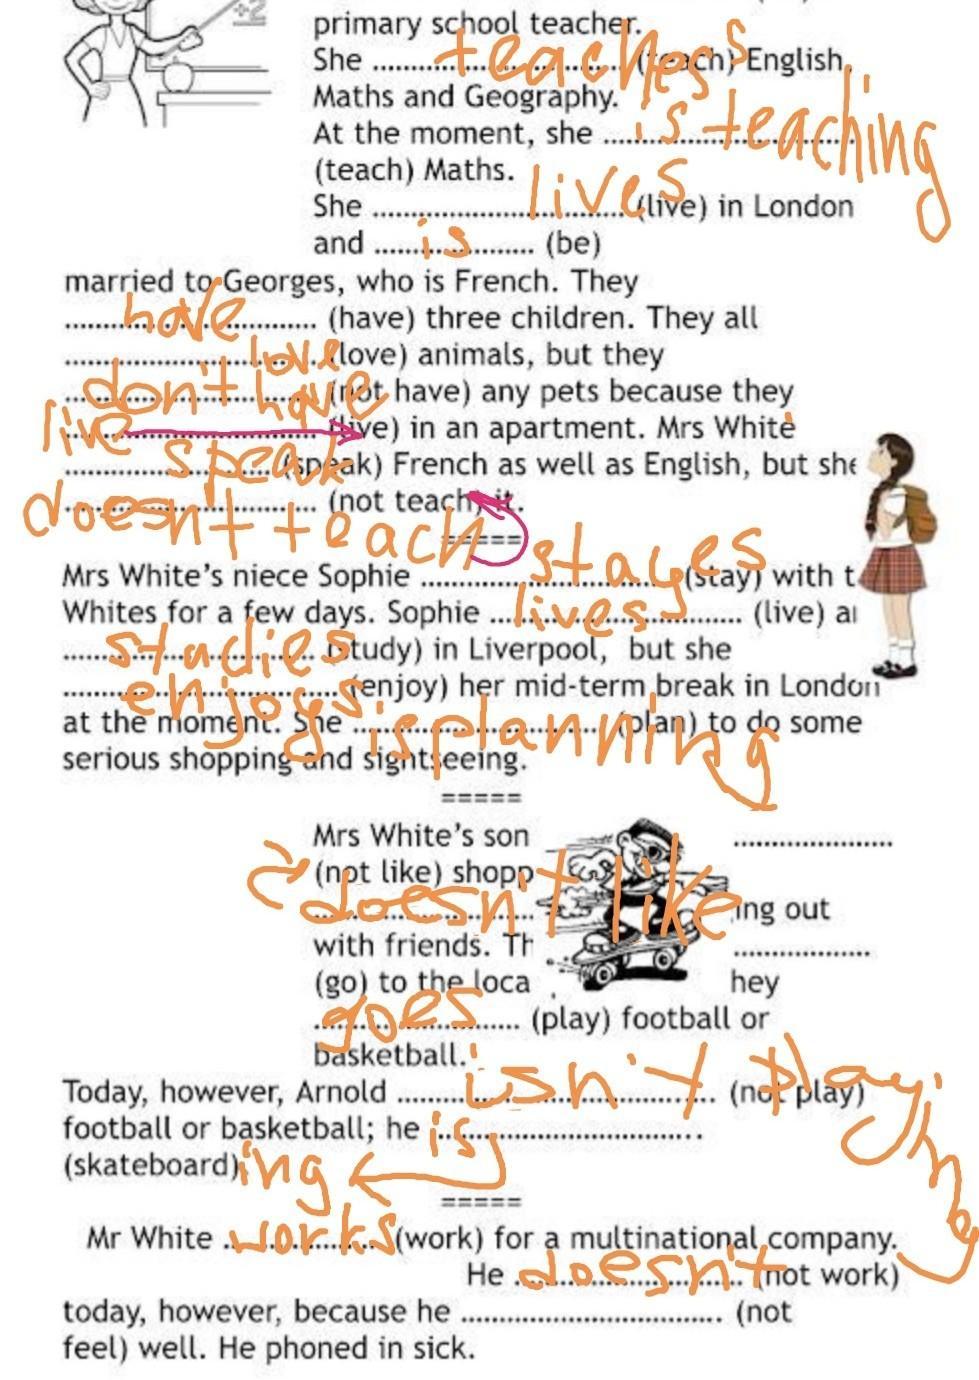 primary school teacher.
She ........teaches........ (teach) English,
Maths and Geography.
At the moment, she ...is teaching...
(teach) Maths.
She ........lives........ (live) in London
and ......is...... (be)
married to Georges, who is French. They
......have...... (have) three children. They all
......love...... (love) animals, but they
......don't have...... (not have) any pets because they
live ...... (live) in an apartment. Mrs White
......speak...... (speak) French as well as English, but she
doesn't teach ...... (not teach) it.
=====
Mrs White's niece Sophie ......stayes...... (stay) with t
Whites for a few days. Sophie ...lives...... (live) an
......studies...... (study) in Liverpool, but she
......enjoys...... (enjoy) her mid-term break in London
at the moment. She ...is planning... (plan) to do some
serious shopping and sightseeing.
=====
Mrs White's son ......
(not like) shopp
doesn't like ing out
with friends. Th ......
(go) to the loca hey
...goes...... (play) football or
basketball.
Today, however, Arnold ......isn't playing...... (not play)
football or basketball; he is ......
(skateboard) ing
=====
Mr White ...works... (work) for a multinational company.
He ...doesn't... (not work)
today, however, because he ...... (not
feel) well. He phoned in sick.